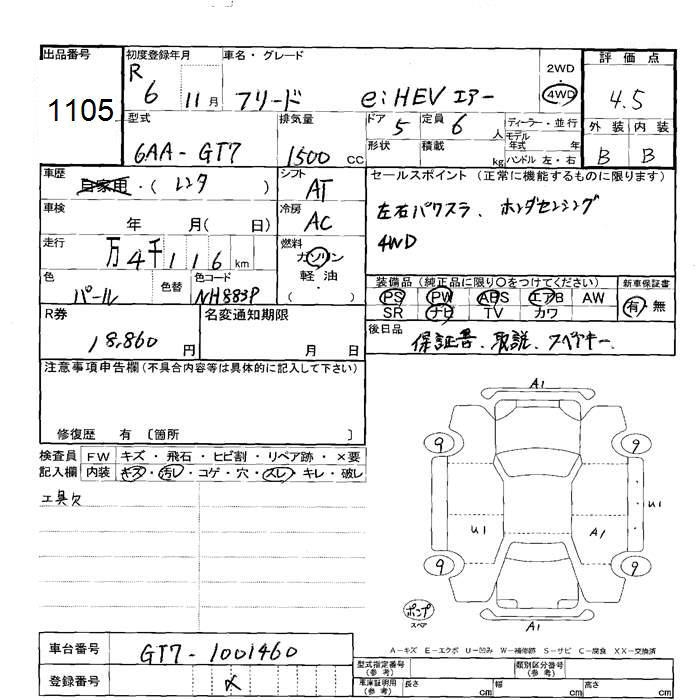 出品番号 初度登録年月 車名・グレード 2WD 評価点
1105 R 6 11月 フリード e:HEV エアー 4WD 4.5
型式 排気量 ドア 定員 ディーラー・並行 外装 内装
6AA-GT7 1500 CC 5 6 人 モデル年式 年 B B
形状 積載 kg ハンドル 左・右
車歴 シフト セールスポイント (正常に機能するものに限ります)
自家用・( レンタ ) AT 左右パワスラ、ホンダセンシング
車検 冷房 4WD
年 月( 日) AC
走行 燃料
万 4千 1 1 6 km ガソリン
色 色替 色コード 軽油
パール NH883P ( )
装備品(純正品に限り○をつけてください) 新車保証書
PS PW ABS エアB AW 有・無
SR ナビ TV カワ
R券 名変通知期限 後日品
18,860 円 月 日 保証書、取説、スペアキー、
注意事項申告欄(不具合内容等は具体的に記入して下さい)
修復歴 有 〔箇所 〕
検査員 FW キズ・飛石・ヒビ割・リペア跡・×要
記入欄 内装 キズ・汚レ・コゲ・穴・スレ・キレ・破レ
工具欠
A1
9 9
U1 A1 U1
9 9
ポンプ
スペア
A1
A-キズ E-エクボ U-凹み W-補修跡 S-サビ C-腐食 XX-交換済
車台番号 GT7-1001460
型式指定番号(参考) 類別区分番号(参考)
登録番号 〆
車庫証明用(参考) 長さ cm 幅 cm 高さ cm